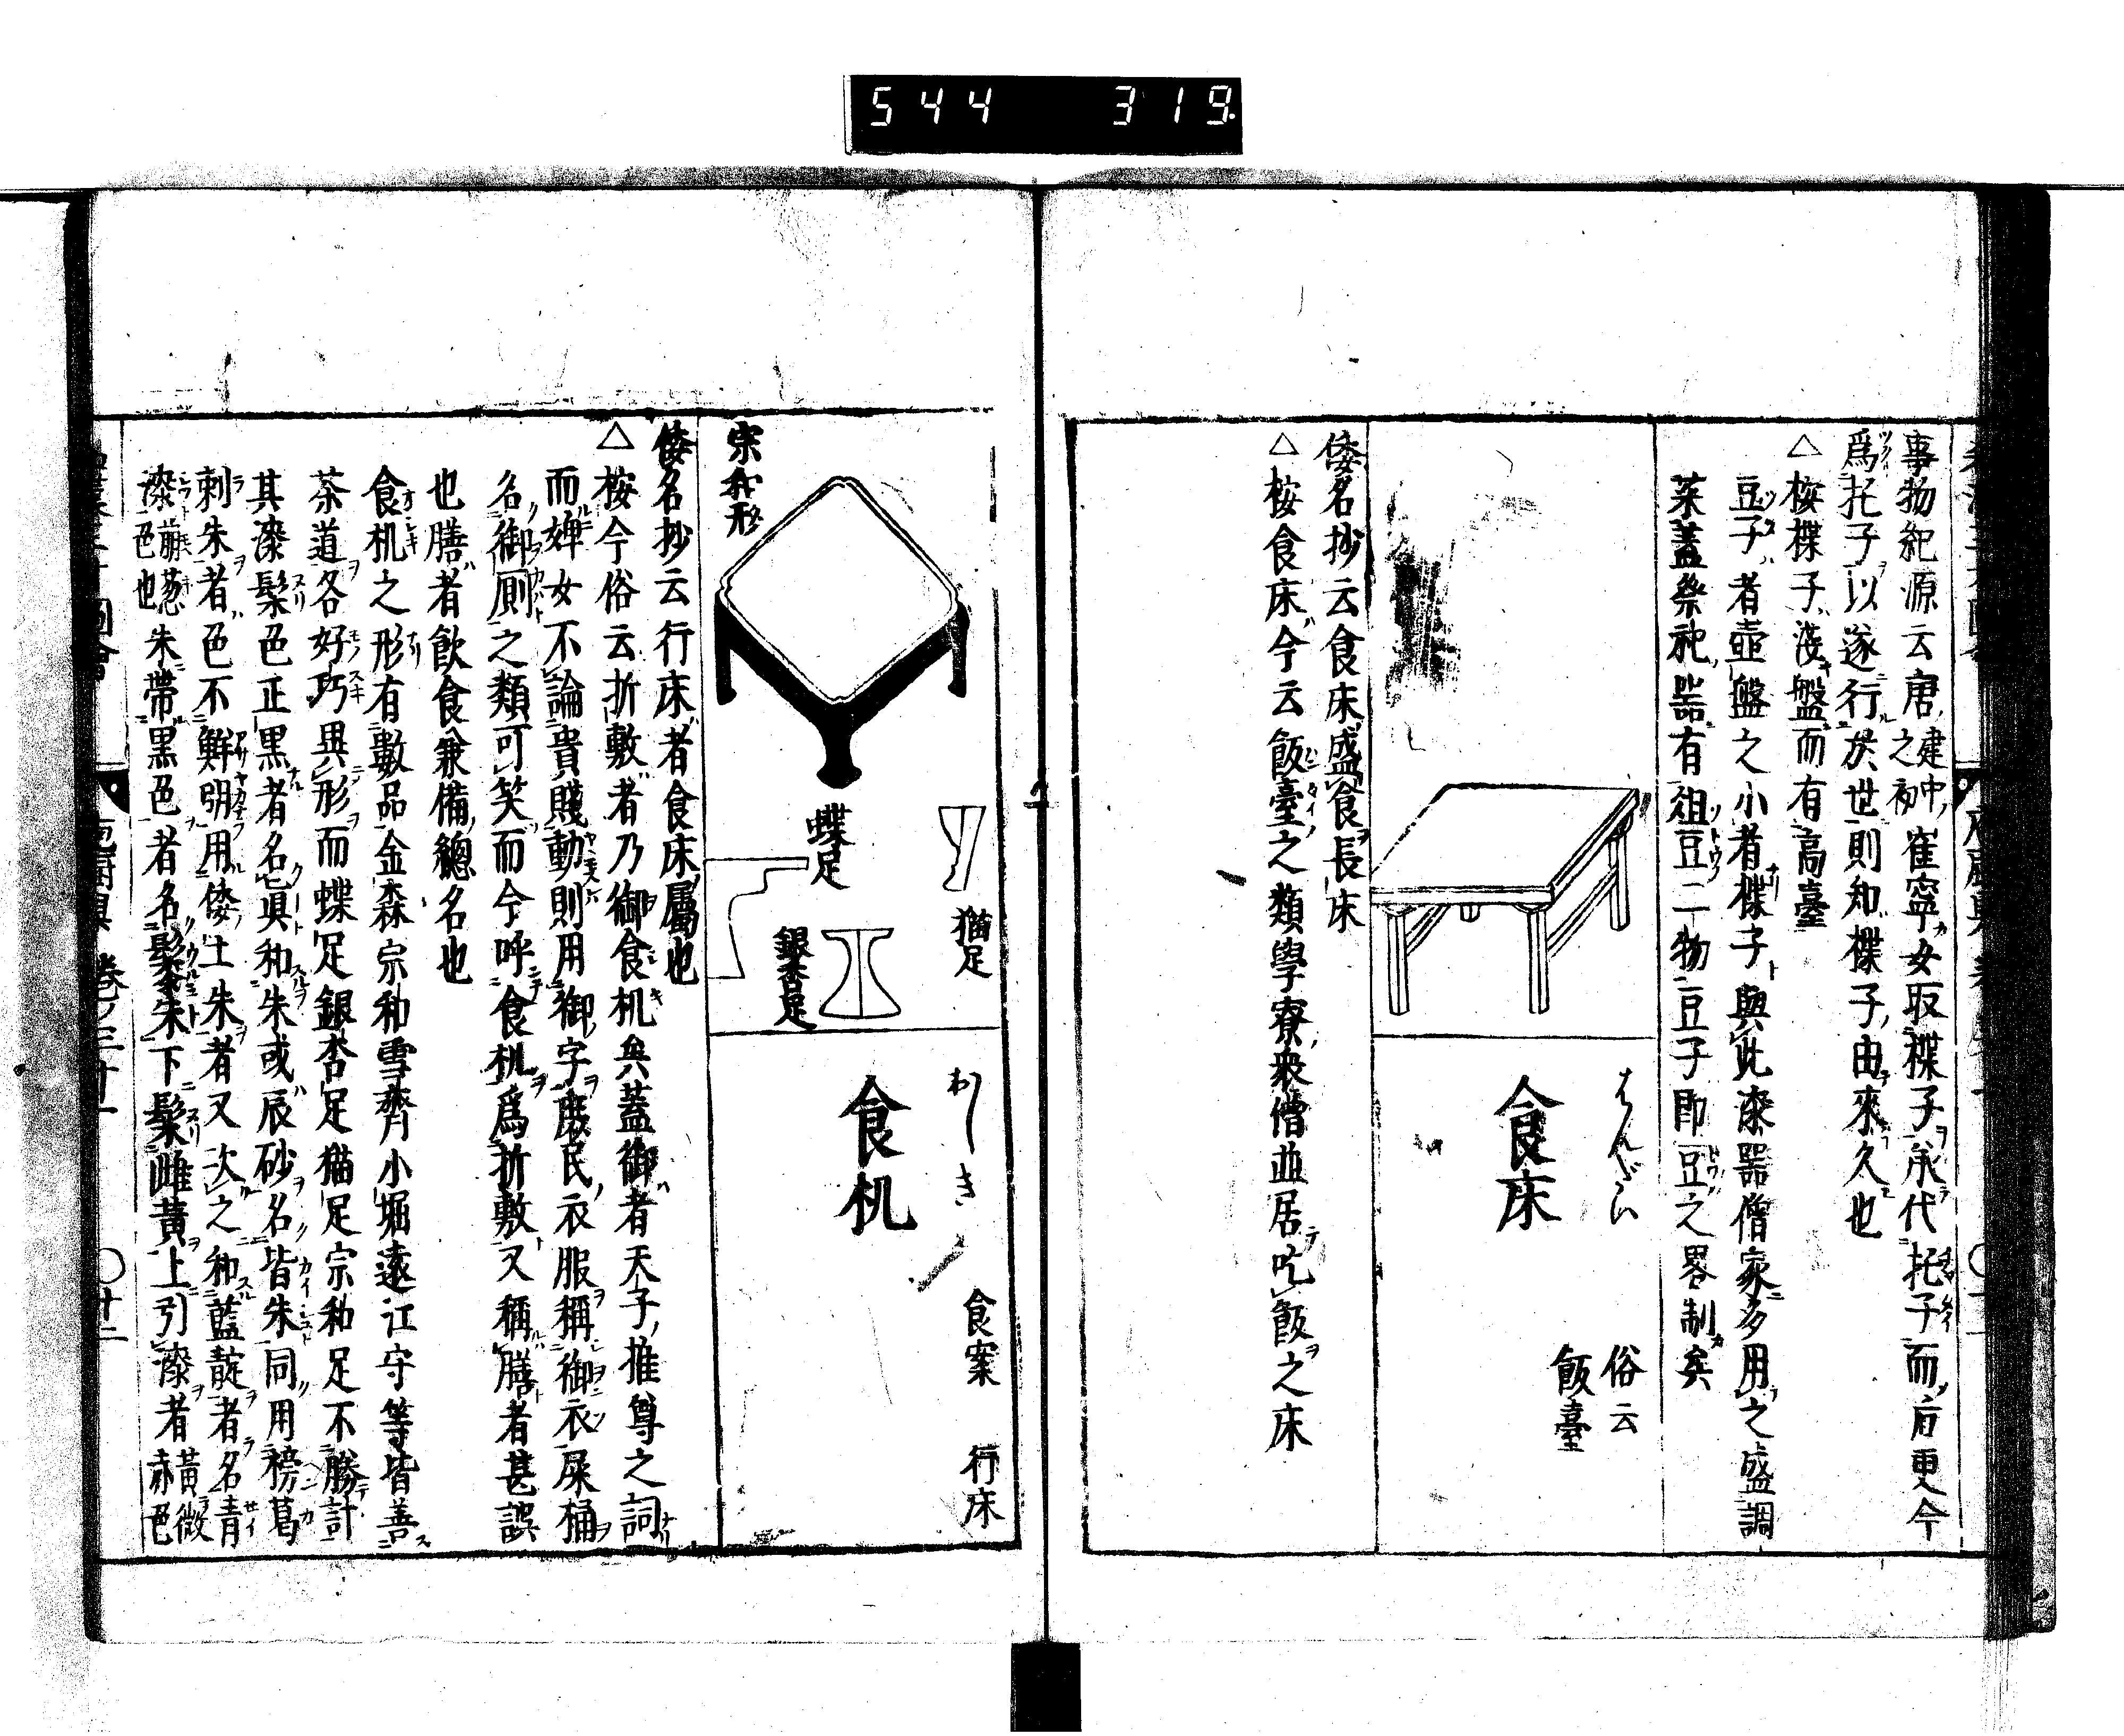 544 319
事物紀源云唐建中之初崔寧女取楪子承代托子而后更今
爲托子以遂行於世則知楪子由來久也
△桉楪子淺盤而有高臺
豆子者壺盤之小者楪子與此漆器僧家多用之盛調
菜蓋祭祀器有俎豆二物豆子即豆之畧制矣
はんだい
食床
俗云
飯臺
倭名抄云食床盛食長床
△桉食床今云飯臺之類學寮衆僧並居吃飯之床
宗和形
蝶足
猫足
銀杏足
おしき
食机
食案
行床
倭名抄云行床者食床屬也
△桉今俗云折敷者乃御食机矣蓋御者天子推尊之詞
而婢女不論貴賤動則用御字庶民衣服稱御衣屎桶
名御厠之類可笑而今呼食机爲折敷又稱膳者甚誤
也膳者飮食兼備總名也
食机之形有數品金森宗和雪齊小堀遠江守等皆善
茶道各好巧異形而蝶足銀杏足猫足宗和足不勝計
其漆髹色正黒者名眞和朱或辰砂名皆朱同用榜葛
刺朱者色不鮮明用倭土朱者又次之和藍靛者名青
漆萠葱色也朱帶黒色者名髹朱下髹雌黄上引漆者黃微赤色
卷ノ三十一
〇廿二